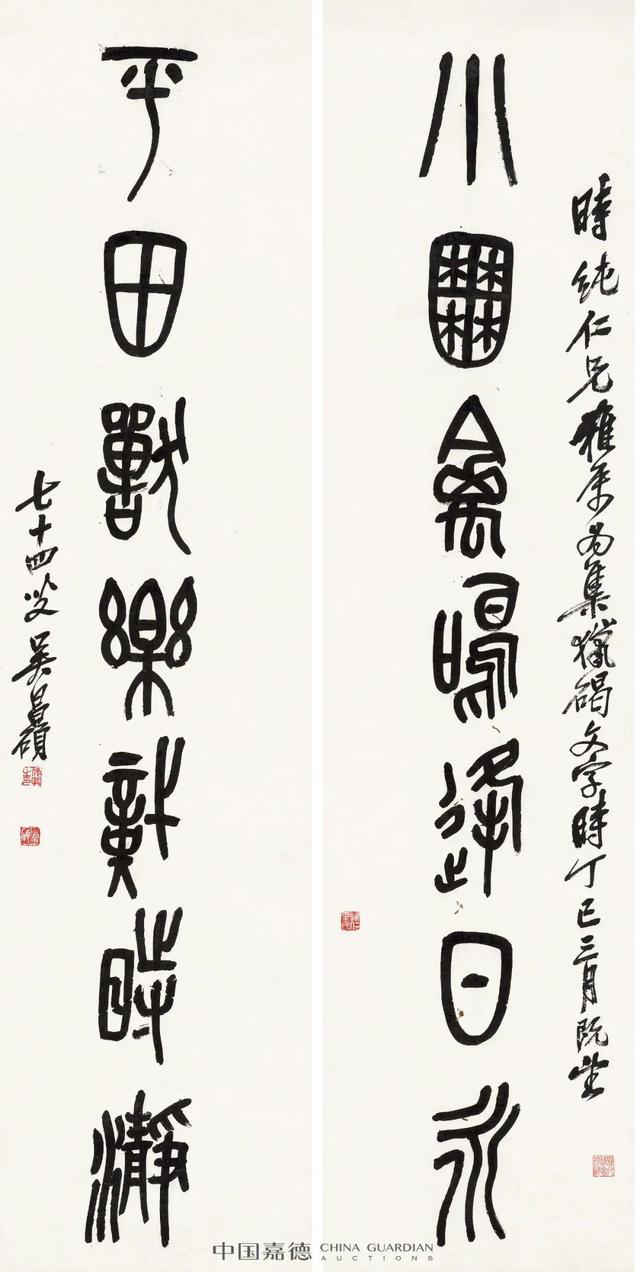 小囿禽鳴逢日永
時純仁兄雅屬為集獵碣文字時丁巳三月既望
平田獸樂時瀞
七十四叟吳昌碩
中国嘉德 CHINA GUARDIAN
AUCTIONS